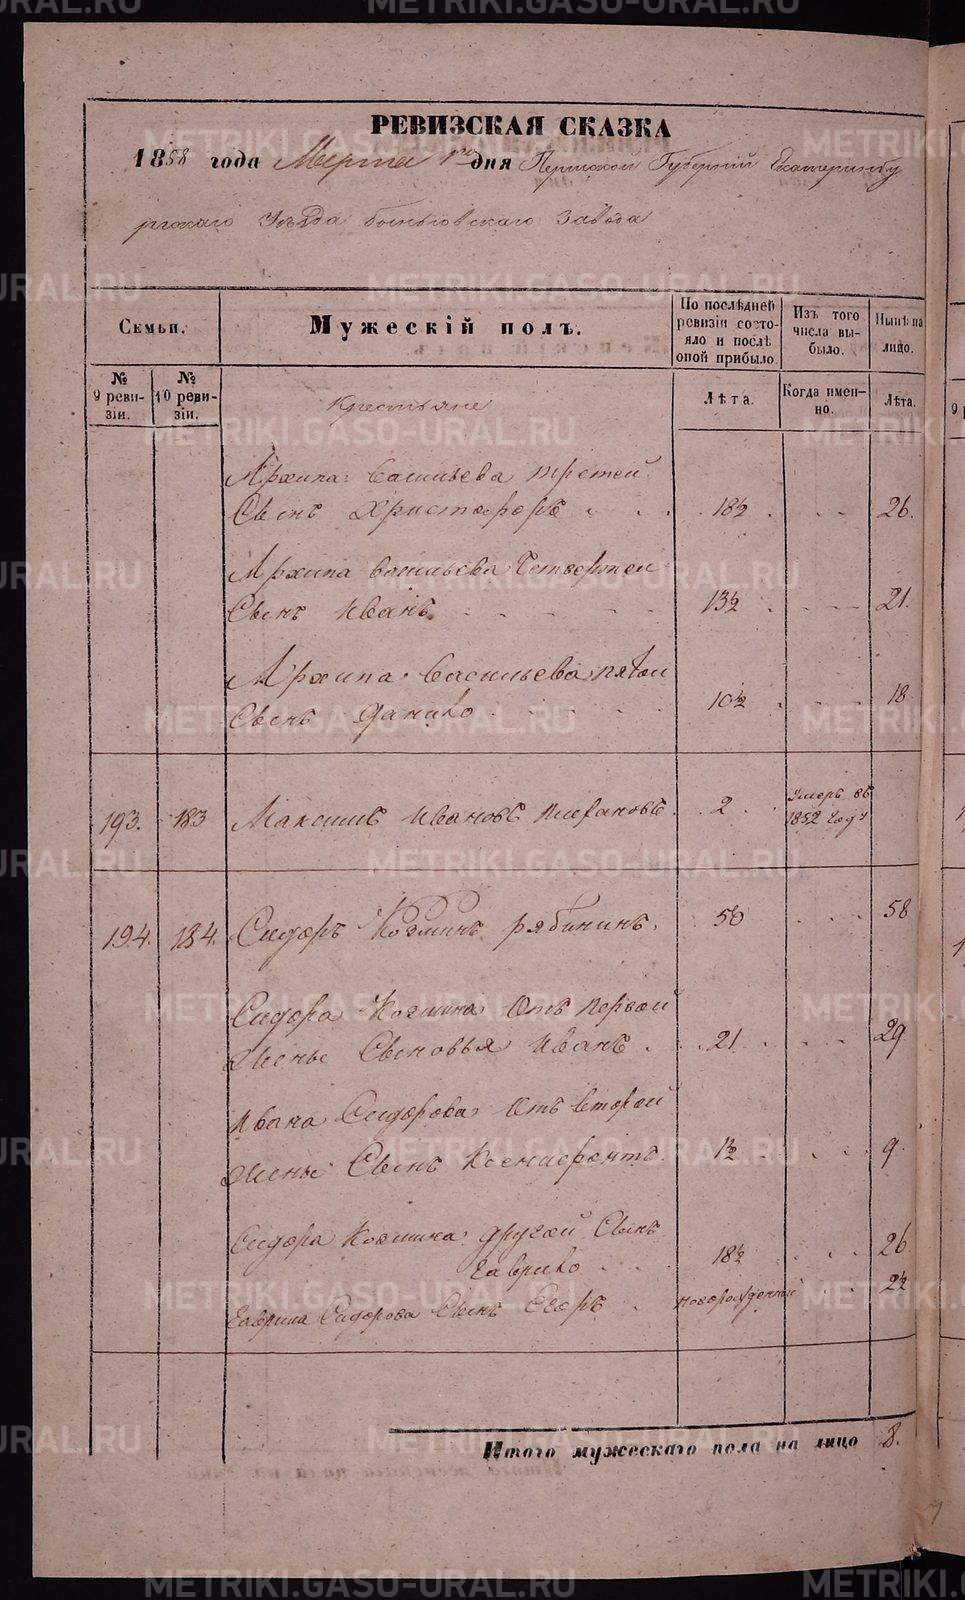 РЕВИЗСКАЯ СКАЗКА
1858 года Марта 1го дня Пермской Губерніи Екатеринбу
ргскаго Уѣзда быньговскаго Завода
Семьи.
Мужескій полъ.
По послѣдней ревизіи состояло и послѣ оной прибыло
Изъ того числа выбыло.
Нынѣ на лицо.
№ 9 ревизіи.
№ 10 ревизіи.
Лѣта.
Когда именно.
Лѣта.
Крестьяне
Архипа Васильева третей
Сынъ Христофоръ 18½ 26.
Архипа васильева Четвертой
Сынъ Иванъ 13½ 21.
Архипа Васильева пятой
Сынъ Данило 10½ 18
193. 183 Максимъ Ивановъ 2 Умеръ въ 1852 году
194. 184. Сидоръ Козминъ рябининъ. 50 58
Сидора Козмина Отъ первой
Жены Сыновья Иванъ 21. 29
Ивана Сидорова Отъ второй
Жены Сынъ Ксенофонтъ 1½ 9.
Сидора Козмина другой Сынъ
Гаврило 18½ 26
Гаврила Сидорова Сынъ Егоръ новорожденный 2½
Итого мужескаго пола на лицо 8.
METRIKI.GASO-URAL.RU